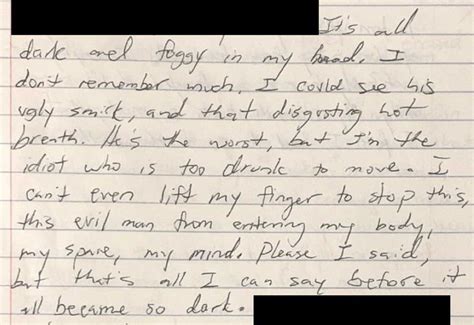 It's all
dark and foggy in my head. I
don't remember much. I could see his
ugly smirk, and that disgusting hot
breath. He's the worst, but I'm the
idiot who is too drunk to move. I
can't even lift my finger to stop this,
this evil man from entering my body,
my space, my mind. Please I said,
but that's all I can say before it
all became so dark.